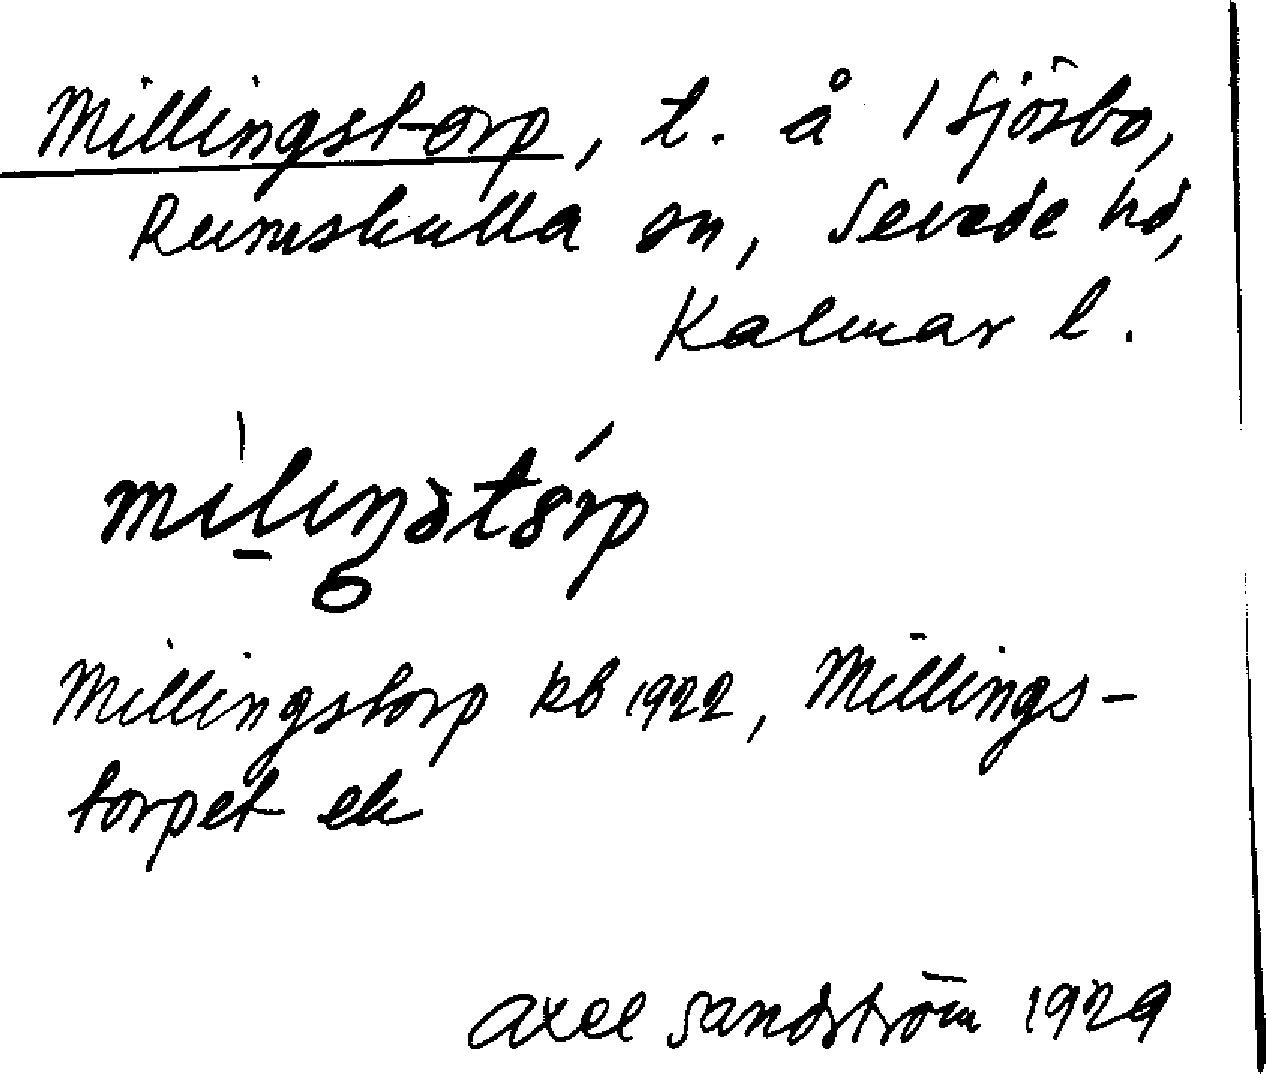 Millingstorp, t. å 1 Sjösbo,
Rumskulla sn, Sevede hd,
Kalmar l.
Millingstorp kb 1922, Millings-
torpet ek
Axel Sandström 1929